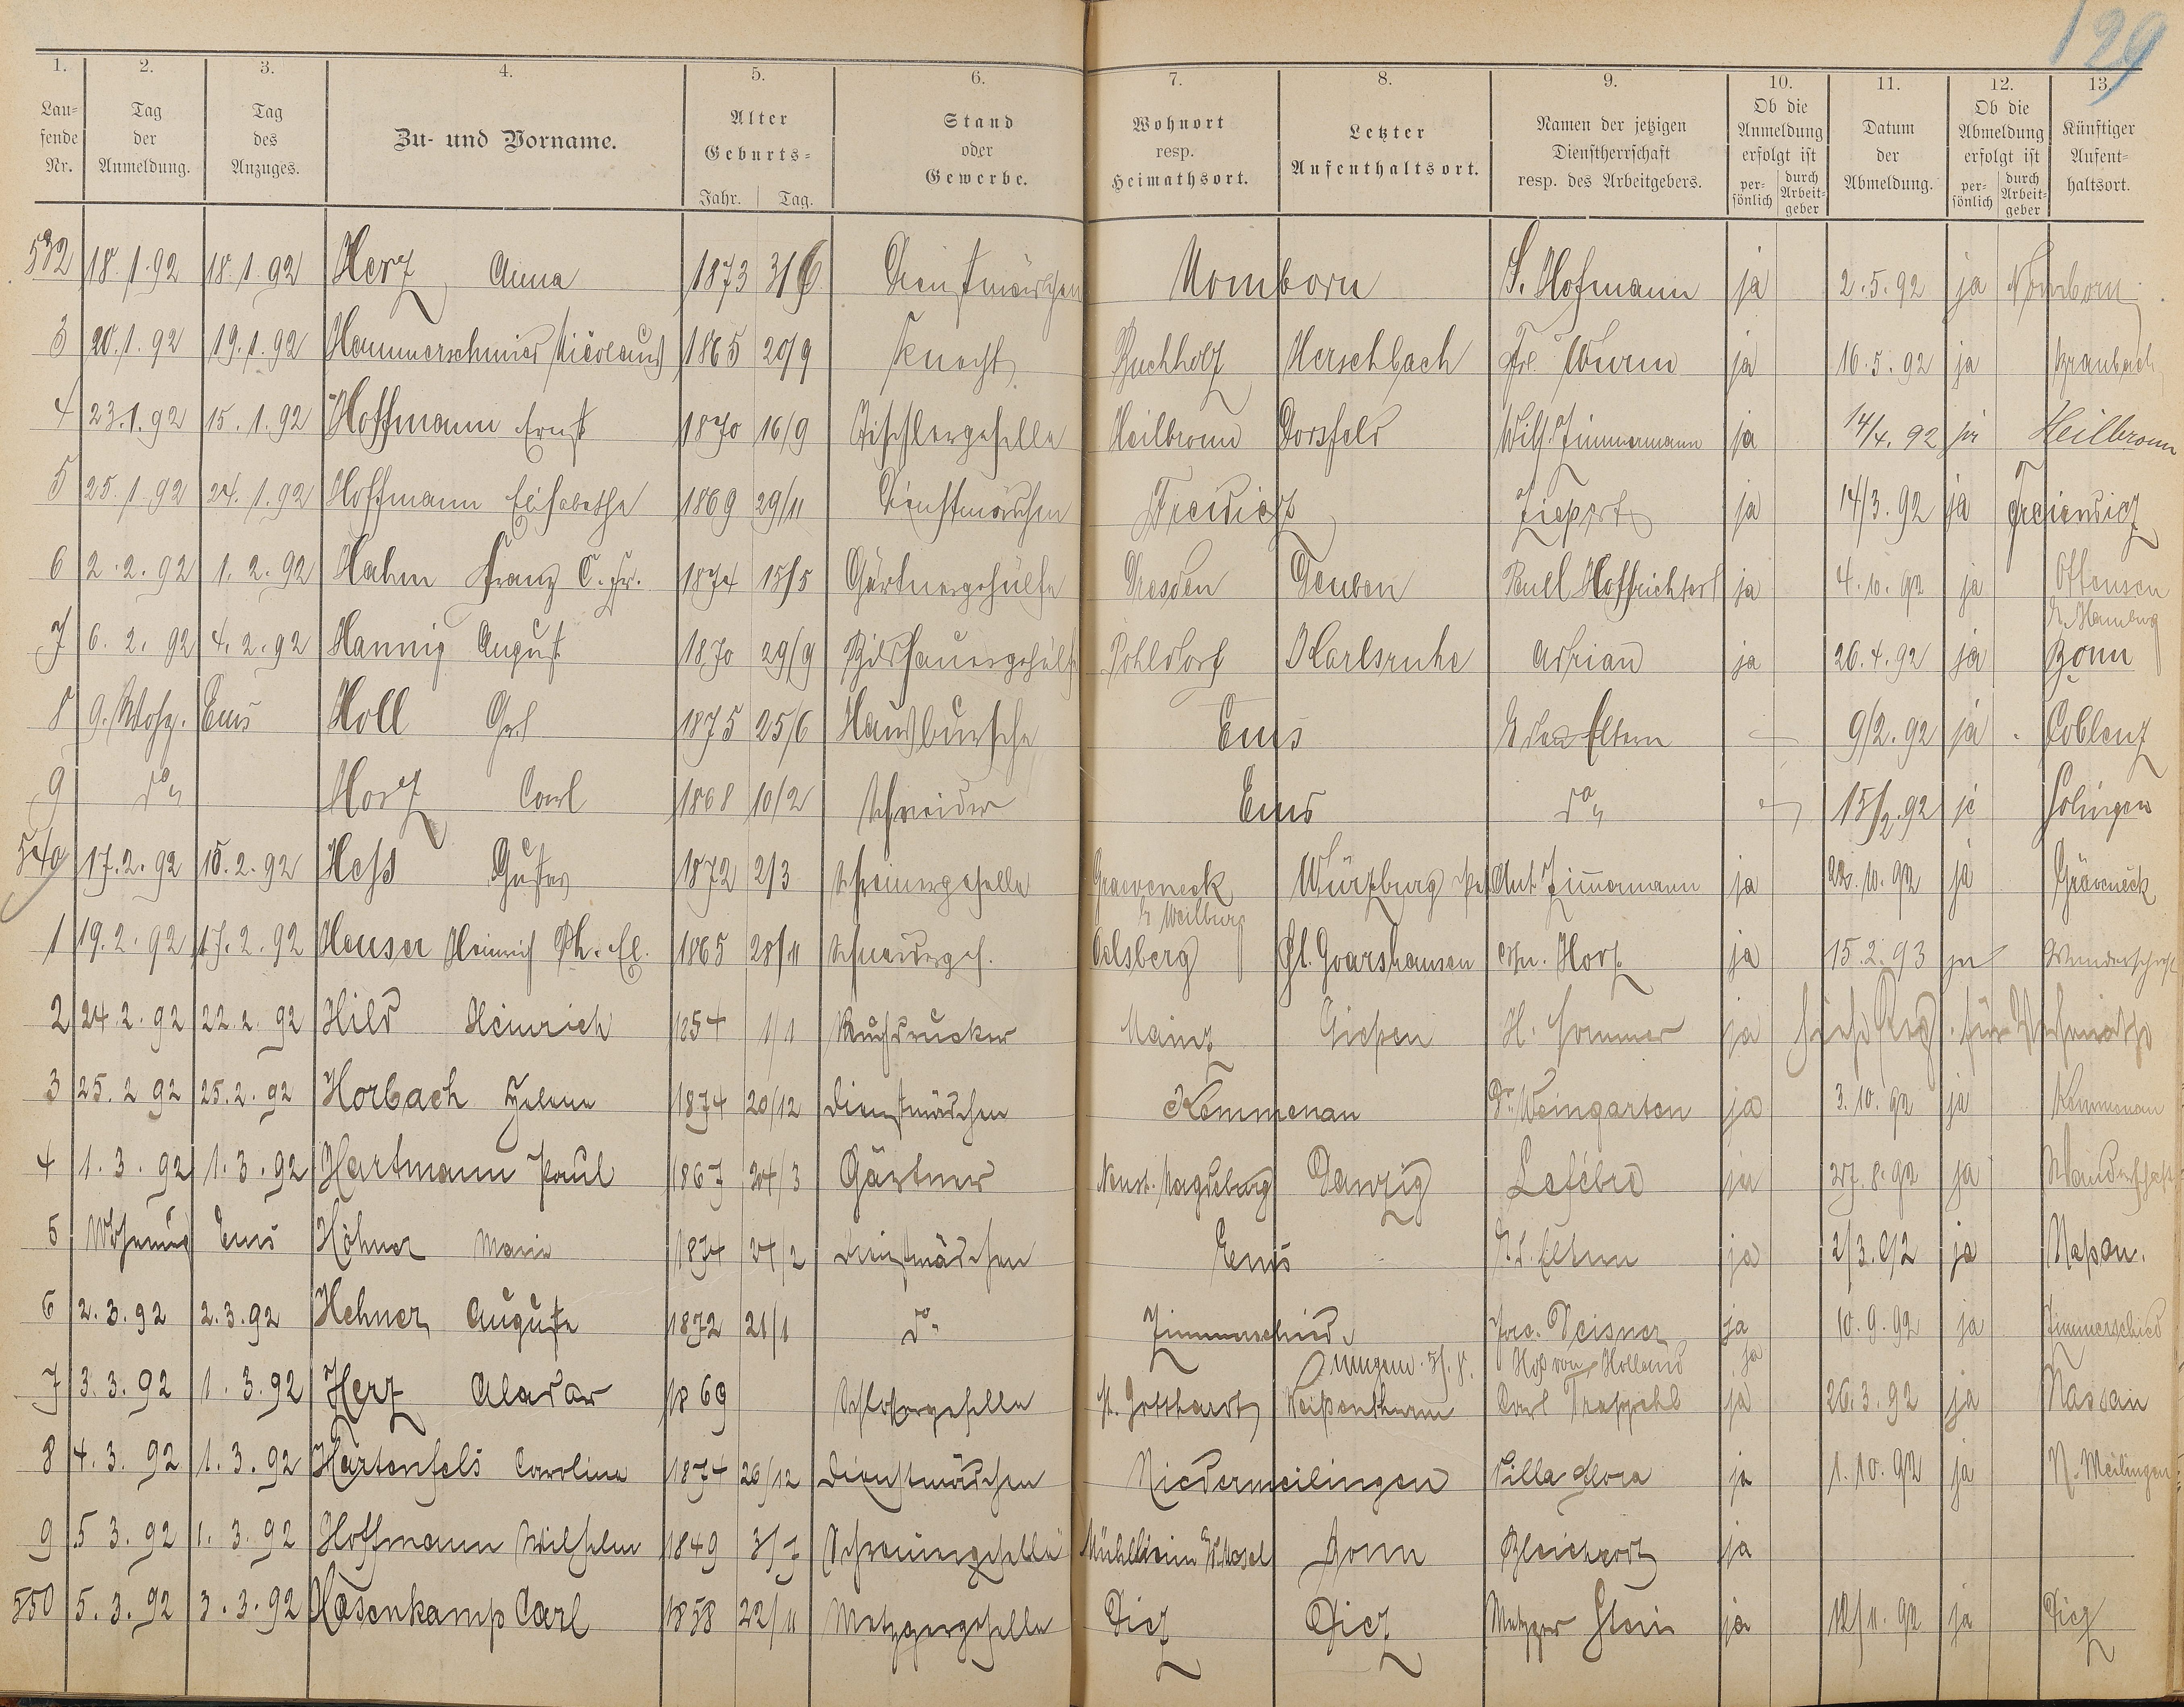 129
1. 2. 3. 4. 5. 6. 7. 8. 9. 10. 11. 12. 13.
Lau-
fende
Nr.
Tag
der
Anmeldung.
Tag
des
Anzuges.
Zu- und Vorname.
Alter
Geburts-
Jahr. Tag.
Stand
oder
Gewerbe.
Wohnort
resp.
Heimathsort.
Letzter
Aufenthaltsort.
Namen der jetzigen
Dienstherrschaft
resp. des Arbeitgebers.
Ob die
Anmeldung
erfolgt ist
per-
sönlich
durch
Arbeit-
geber
Datum
der
Abmeldung.
Ob die
Abmeldung
erfolgt ist
per-
sönlich
durch
Arbeit-
geber
Künftiger
Aufent-
haltsort.
532 18.1.92 18.1.92 Herz Anna 1873 Dienstmädchen Nomborn S. Hofmann ja 2.5.92 ja Nomborn
3 20.1.92 19.1.92 Hammerschmied Nicolaus 1865 20/9 Knecht Buchholz Herschbach Wurm ja 16.5.92 ja Braubach
4 23.1.92 15.1.92 Hoffmann Ernst 1870 16/9 Tischlergeselle Heilbronn Dorsfeld Wilh. Zimmermann ja 14/4.92 ja Heilbronn
5 25.1.92 24.1.92 Hoffmann Elisabethe 1869 29/11 Dienstmädchen ja 14/3.92 ja
6 2.2.92 1.2.92 Hahm Franz C. Fr. 1874 15/5 Gärtnergehülfe Dresden Deuben Paul Hoffrichter ja 4.10.92 ja Ottensen
b. Hamburg
7 6.2.92 4.2.92 Hannig August 1870 29/9 Bildhauergehülfe Pohldorf Karlsruhe Adrian ja 26.4.92 ja Bonn
8 9. Wohg. Ems Holl 1875 25/6 Hausbursche Ems b. den Eltern 9/2.92 ja Coblenz
9 do Horz Carl 1868 10/2 Schneider Ems do 15/2.92 ja Solingen
540 17.2.92 15.2.92 Hess Gustav 1872 2/3 Schreinergeselle Graveneck Würzburg Ant. Zimmermann ja 10.92 ja Gräveneck
b Weilburg
1 19.2.92 17.2.92 Heuser Heinrich Ph. 1865 28/11 Schneiderges. Oelsberg St. Goarshausen Horz ja 15.2.93 ja Wanderschaft
2 24.2.92 22.2.92 Hild Heinrich 1854 1/1 Buchdrucker Mainz Giesen H. Sommer ja
3 25.2.92 25.2.92 Horbach Helene 1874 20/12 Dienstmädchen Kemmenau Dr. Weingarten ja 3.10.92 ja Kemmenau
4 1.3.92 1.3.92 Hartmann Paul 1867 24/3 Gärtner Neust. Magdeburg Danzig Lefébre ja 27.8.92 ja Wanderschaft
5 Wohnung Ems Höhner Marie 1874 24/2 Dienstmädchen Ems b. d. Eltern ja 2/3.92 ja Naßau.
6 2.3.92 2.3.92 Hehner Auguste 1872 21/1 do Zimmerschied Meisner ja 10.9.92 ja Zimmerschied
Hof von Holland ja
7 3.3.92 1.3.92 Herz Aladar 1869 Schlossergeselle St. Gotthardt Weißenthurm Carl Trappehl ja 26.3.92 ja Nassau
8 4.3.92 1.3.92 Hartenfels Caroline 1874 26/12 Dienstmädchen Niedermeilingen Villa Flora ja 1.10.92 ja N. Meilingen
9 5 3.92 1.3.92 Hoffmann Wilhelm 1849 3/7 Schreinergeselle Mühlheim a/Mosel Bonn ja
550 5.3.92 3.3.92 Hasenkamp Carl 1858 22/11 Metzgergeselle Diez Diez Metzger Stein ja 12/11.92 ja Diez